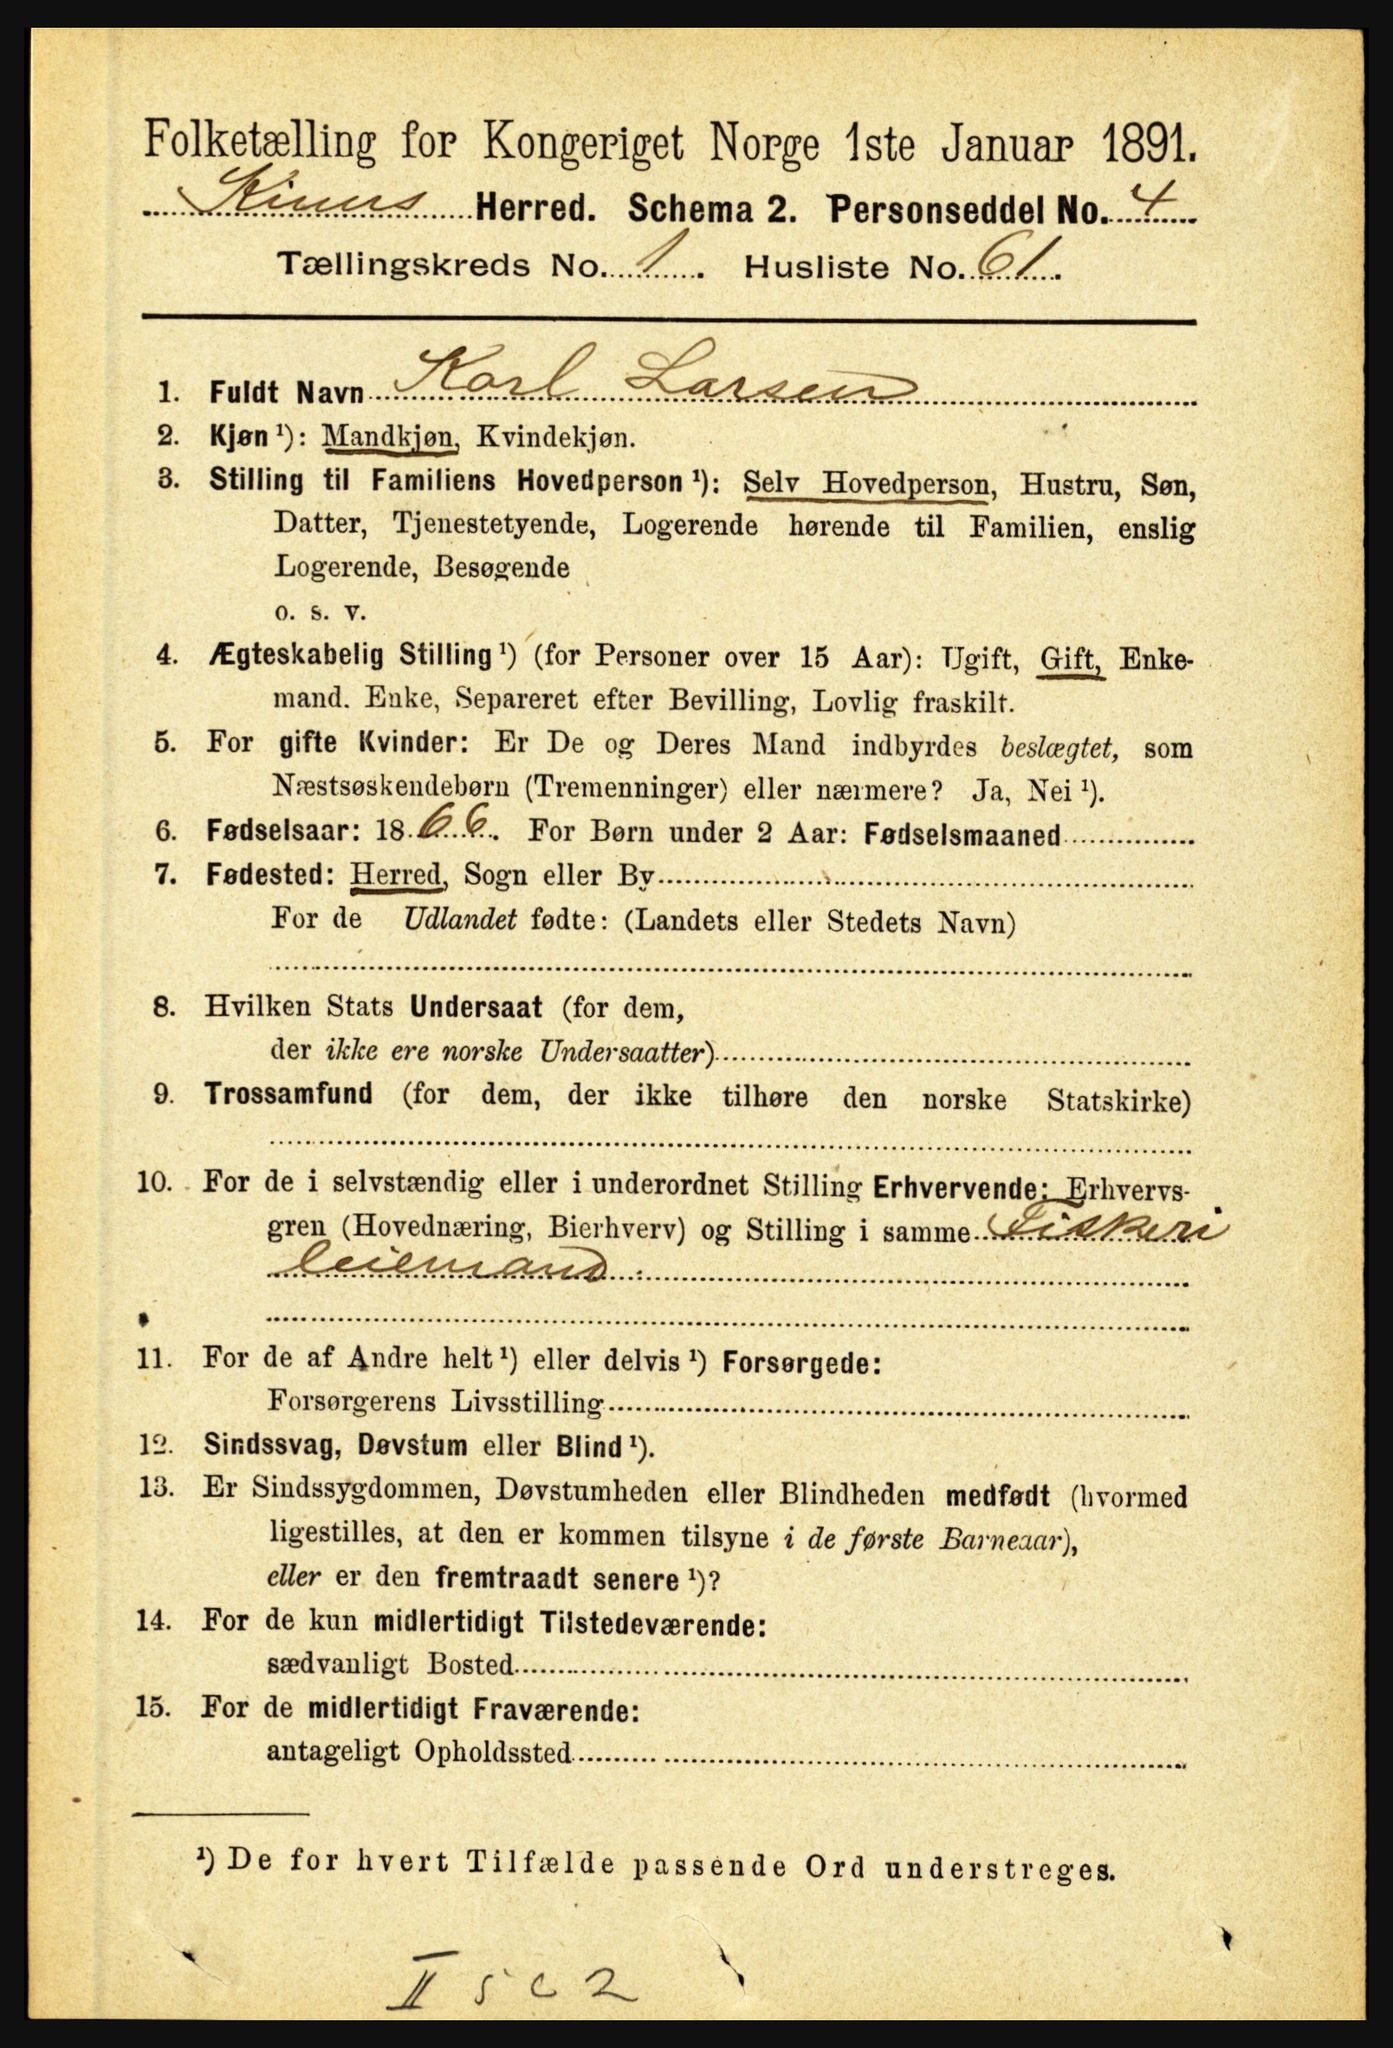 Folketælling for Kongeriget Norge 1ste Januar 1891.
Kinns Herred. Schema 2. Personseddel No. 4
Tællingskreds No. 1. Husliste No. 61.
1. Fuldt Navn Karl Larsen
2. Kjøn ¹): Mandkjøn, Kvindekjøn.
3. Stilling til Familiens Hovedperson ¹): Selv Hovedperson, Hustru, Søn,
Datter, Tjenestetyende, Logerende hørende til Familien, enslig
Logerende, Besøgende
o. s. v.
4. Ægteskabelig Stilling ¹) (for Personer over 15 Aar): Ugift, Gift, Enke-
mand. Enke, Separeret efter Bevilling, Lovlig fraskilt.
5. For gifte Kvinder: Er De og Deres Mand indbyrdes beslægtet, som
Næstsøskendebørn (Tremenninger) eller nærmere? Ja, Nei ¹).
6. Fødselsaar: 1866. For Børn under 2 Aar: Fødselsmaaned
7. Fødested: Herred, Sogn eller By
For de Udlandet fødte: (Landets eller Stedets Navn)
8. Hvilken Stats Undersaat (for dem,
der ikke ere norske Undersaatter)
9. Trossamfund (for dem, der ikke tilhøre den norske Statskirke)
10. For de i selvstændig eller i underordnet Stilling Erhvervende: Erhvervs-
gren (Hovednæring, Bierhverv) og Stilling i samme Fiskeri
leiemand
11. For de af Andre helt ¹) eller delvis ¹) Forsørgede:
Forsørgerens Livsstilling
12. Sindssvag, Døvstum eller Blind ¹).
13. Er Sindssygdommen, Døvstumheden eller Blindheden medfødt (hvormed
ligestilles, at den er kommen tilsyne i de første Barneaar),
eller er den fremtraadt senere ¹)?
14. For de kun midlertidigt Tilstedeværende:
sædvanligt Bosted
15. For de midlertidigt Fraværende:
antageligt Opholdssted
¹) De for hvert Tilfælde passende Ord understreges.
II 5 c 2